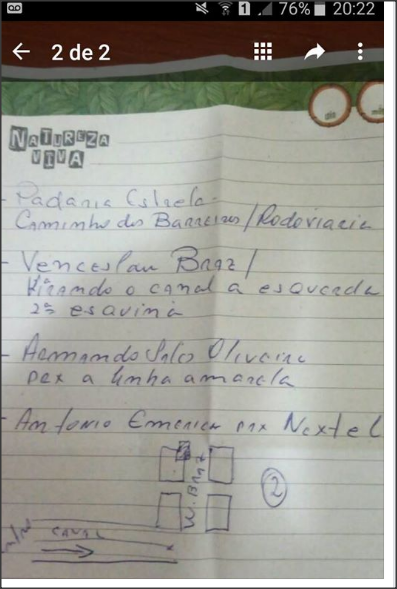 76% 20:22
2 de 2
NATUREZA
VIVA
- Padaria Estrela -
Caminho dos Barreiros / Rodoviaria
- Venceslau BRAZ /
Virando o canal a esquerda
2ª esquina
- Armando Sales Oliveira
pax a linha amarela
- Antonio Emerich pax Nextel
W. BRAZ
2
CANAL